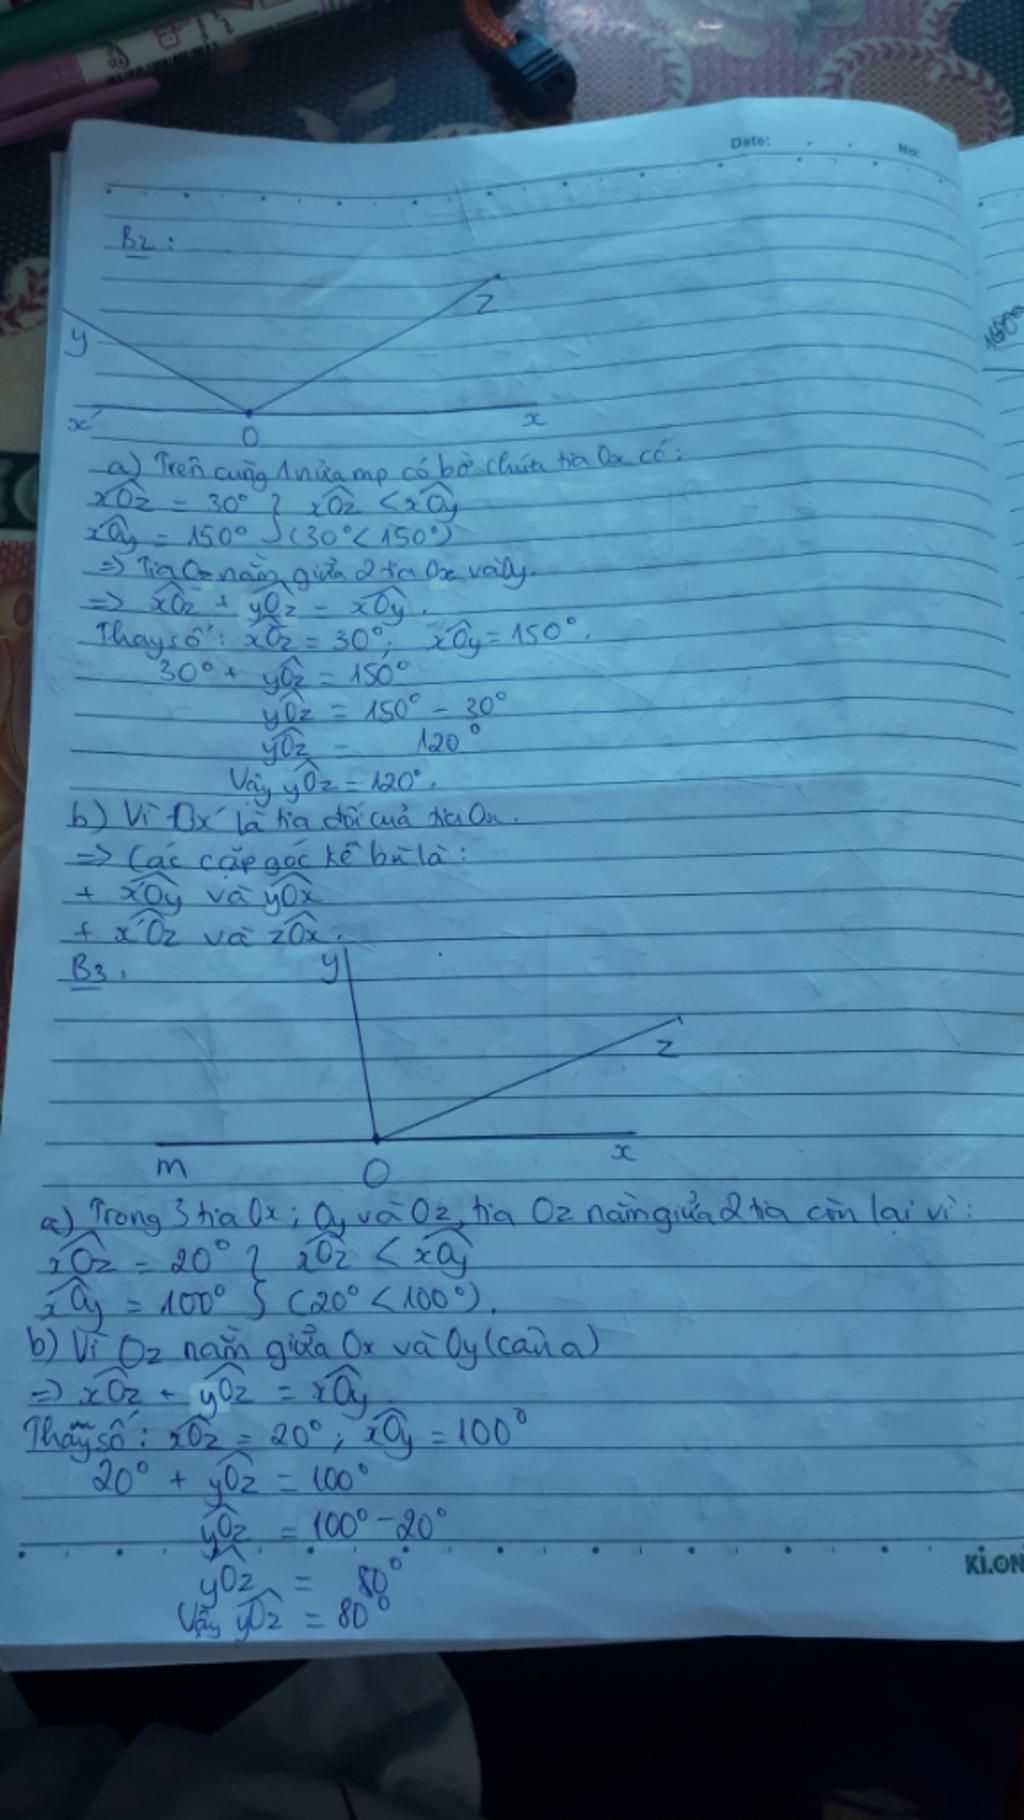 Date:
No:
B2:
y
z
x'
O
x
a) Trên cùng 1 nửa mp có bờ chứa tia Ox có:
xOz = 30° } xOz < xOy
xOy = 150° } (30° < 150°)
=> Tia Oz nằm giữa 2 tia Ox và Oy.
=> xOz + yOz = xOy.
Thay số: xOz = 30°; xOy = 150°.
30° + yOz = 150°
yOz = 150° - 30°
yOz = 120°
Vậy yOz = 120°.
b) Vì Ox' là tia đối của tia Ox.
=> Các cặp góc kề bù là:
+ x'Oy và yOx
+ x'Oz và zOx.
B3.
y
z
m
O
x
a) Trong 3 tia Ox; Oy và Oz, tia Oz nằm giữa 2 tia còn lại vì:
xOz = 20° } xOz < xOy
xOy = 100° } (20° < 100°).
b) Vì Oz nằm giữa Ox và Oy (câu a)
=> xOz + yOz = xOy
Thay số: xOz = 20°; xOy = 100°
20° + yOz = 100°
yOz = 100° - 20°
yOz = 80°
Vậy yOz = 80°
Ki.ON